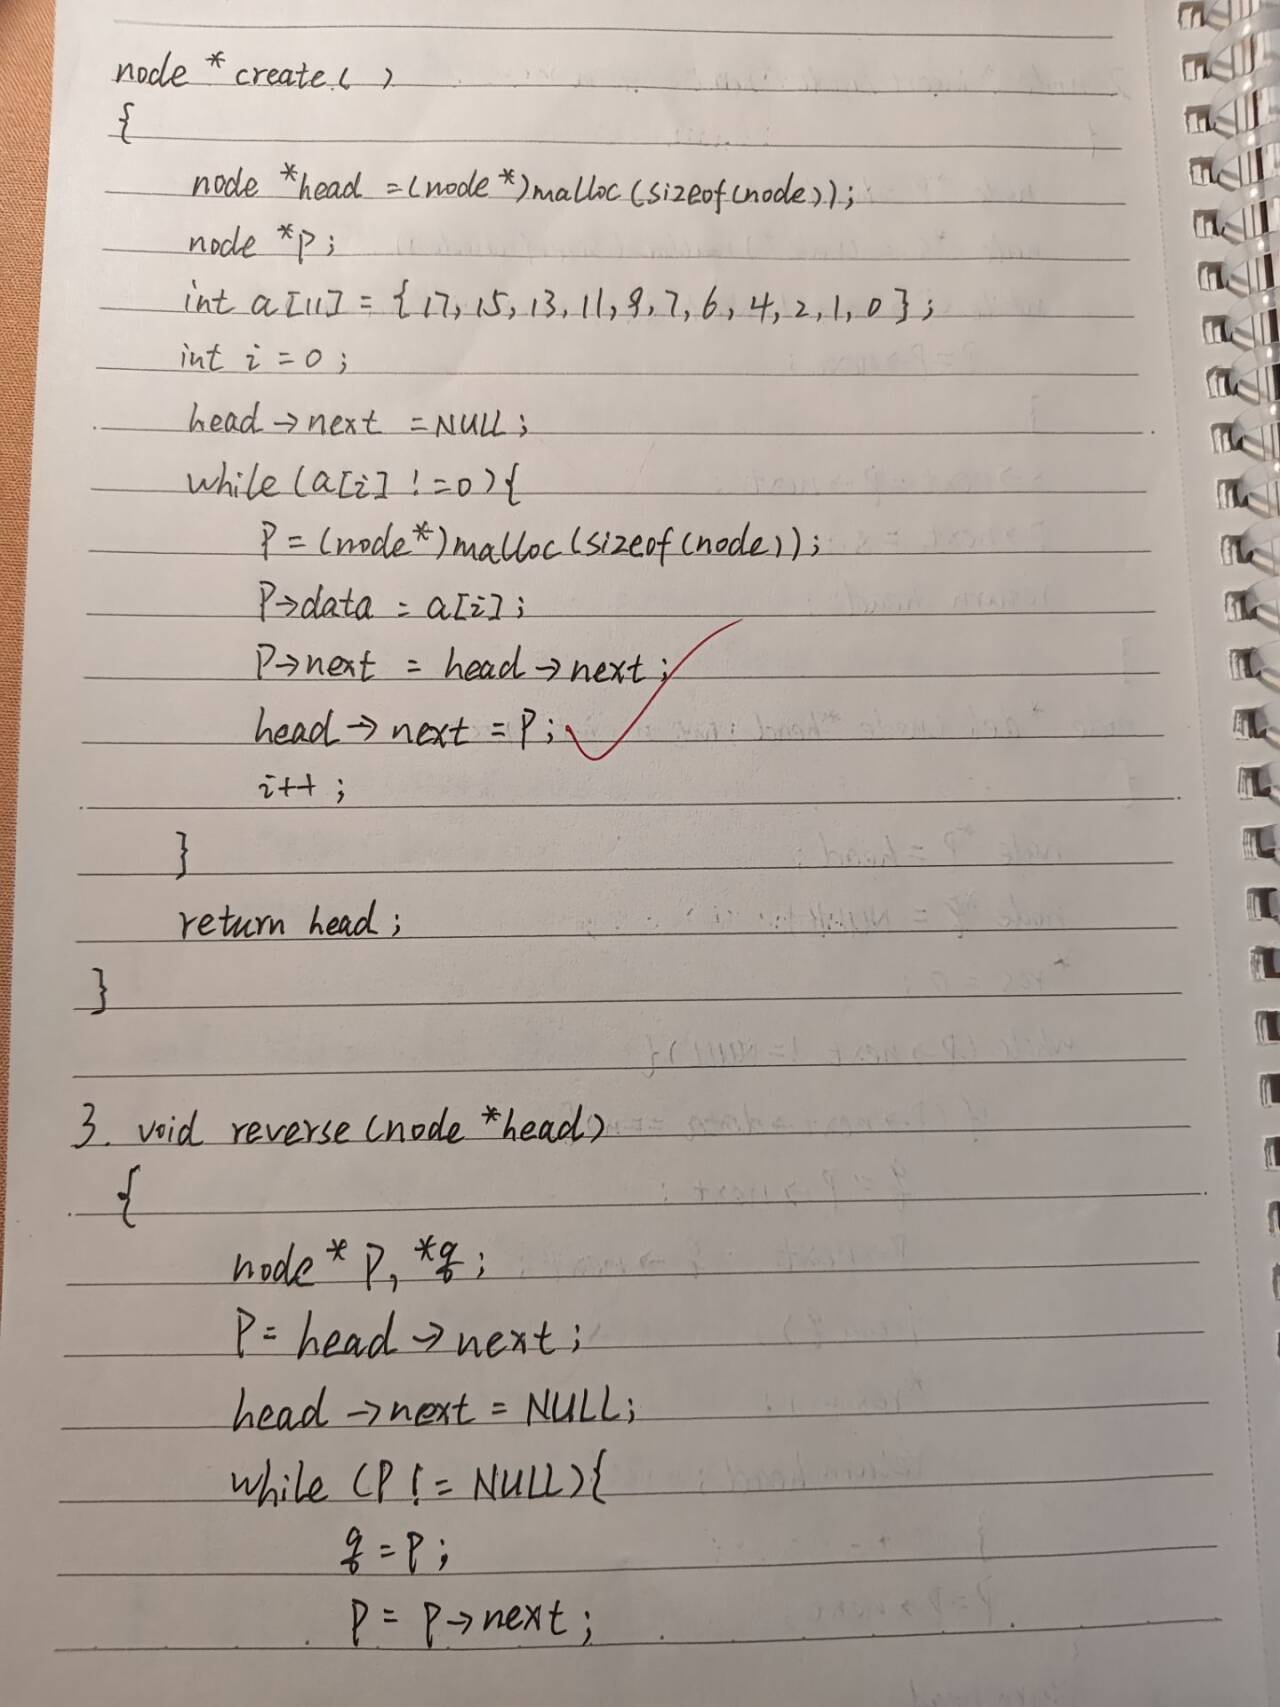 node *create()
{
node *head =(node*)malloc(sizeof(node));
node *p;
int a[11] = {17, 15, 13, 11, 9, 7, 6, 4, 2, 1, 0};
int i = 0;
head->next =NULL;
while (a[i] !=0){
P=(node*)malloc(sizeof(node));
P->data = a[i];
P->next = head->next;
head->next = P;
i++;
}
return head;
}
3. void reverse(node *head)
{
node* P, *q;
P= head->next;
head->next = NULL;
while (P != NULL){
q = P;
P = P->next;